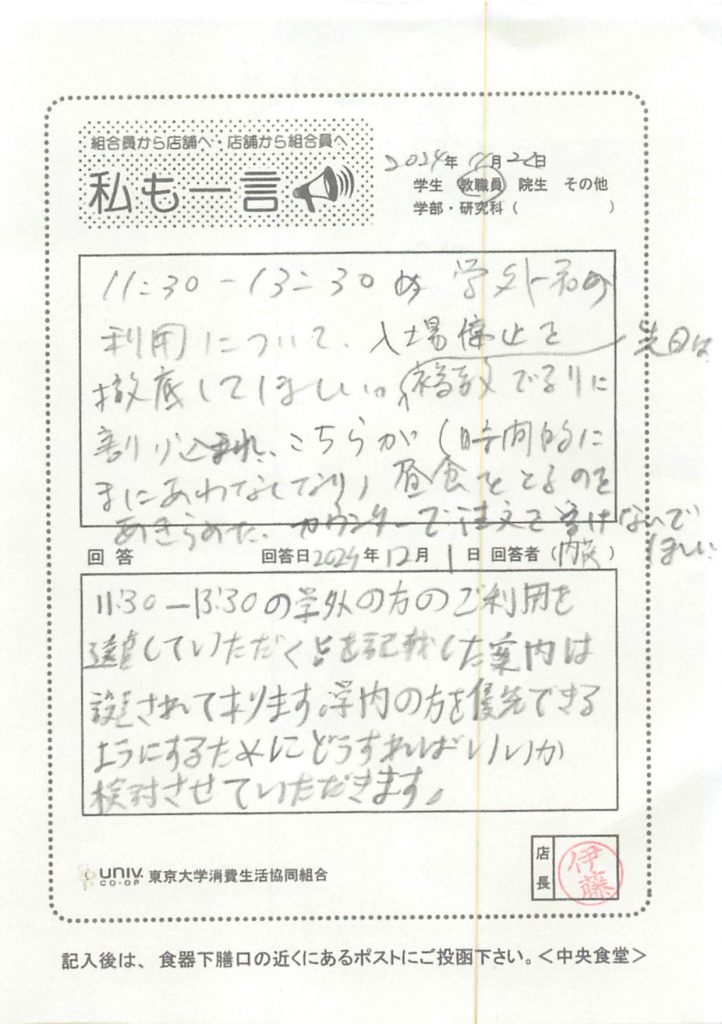 組合員から店舗へ・店舗から組合員へ
私も一言
2024年 月 日
学生 教職員 院生 その他
学部・研究科( )
11:30-13:30の学外者の
利用について、入場停止を
徹底してほしい。先日は複数でるりに
割り込まれ、こちらが(時間的に
まにあわなくなり)昼食をとるのを
あきらめた。カウンターで注文を受けないで
ほしい
回答 回答日2024年12月1日 回答者(内炭)
11:30-13:30の学外の方のご利用を
遠慮していただく旨を記載した案内は
設置されております。学内の方を優先できる
ようにするためにどうすればいいか
検討させていただきます。
UNIV. CO-OP 東京大学消費生活協同組合
店長 伊藤
記入後は、食器下膳口の近くにあるポストにご投函下さい。<中央食堂>